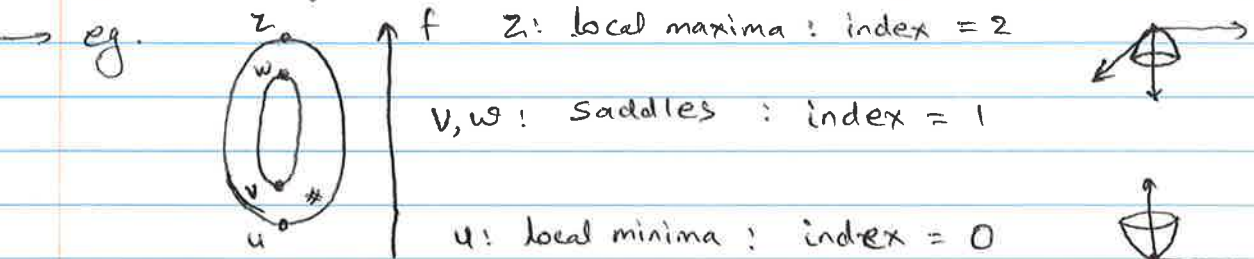 → eg. z f z: local maxima : index = 2
w
v, w : saddles : index = 1
v #
u u: local minima : index = 0